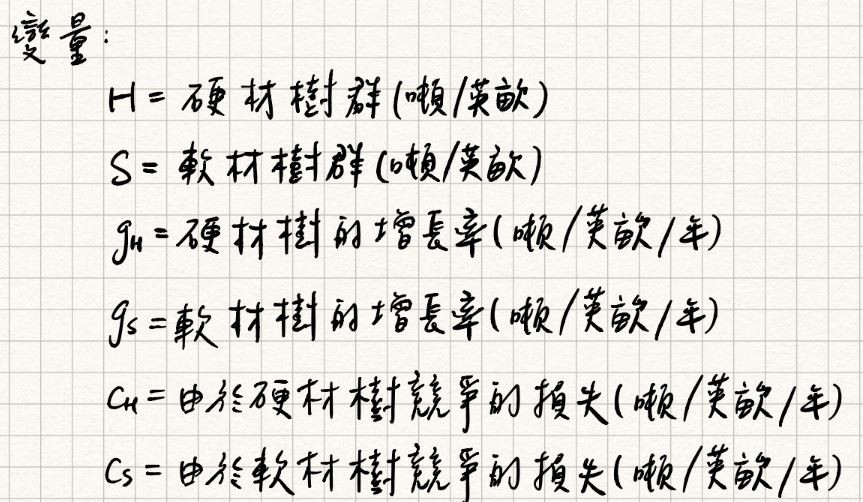 變量:
H = 硬材樹群(噸/英畝)
S = 軟材樹群(噸/英畝)
gH = 硬材樹的增長率(噸/英畝/年)
gS = 軟材樹的增長率(噸/英畝/年)
CH = 由於硬材樹競爭的損失(噸/英畝/年)
CS = 由於軟材樹競爭的損失(噸/英畝/年)